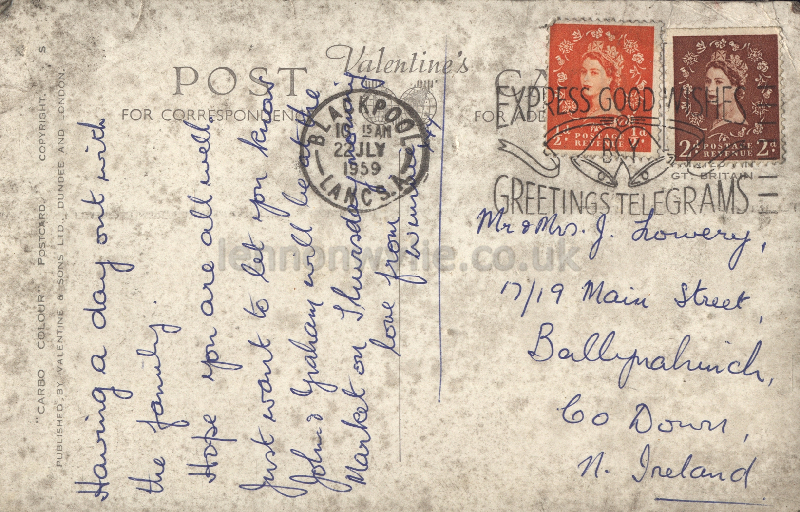 POST
Valentine's
FOR CORRESPONDENCE
"CARBO COLOUR" POSTCARD. COPYRIGHT. S
PUBLISHED BY VALENTINE & SONS LTD., DUNDEE AND LONDON.
Having a day out with
the family.
Hope you are all well
Just want to let you know
John & Graham will be at the
Market on Thursday morning
love from
Winnie xx
BLACKPOOL
10 15 AM
22 JLY
1959
LANCS. A
EXPRESS GOOD WISHES
BY
GREETINGS TELEGRAMS
½d POSTAGE REVENUE ½d
2d POSTAGE REVENUE 2d
GT. BRITAIN
Mr & Mrs. J. Lowery,
17/19 Main Street,
Ballynahinch,
Co Down,
N. Ireland
lennonwylie.co.uk